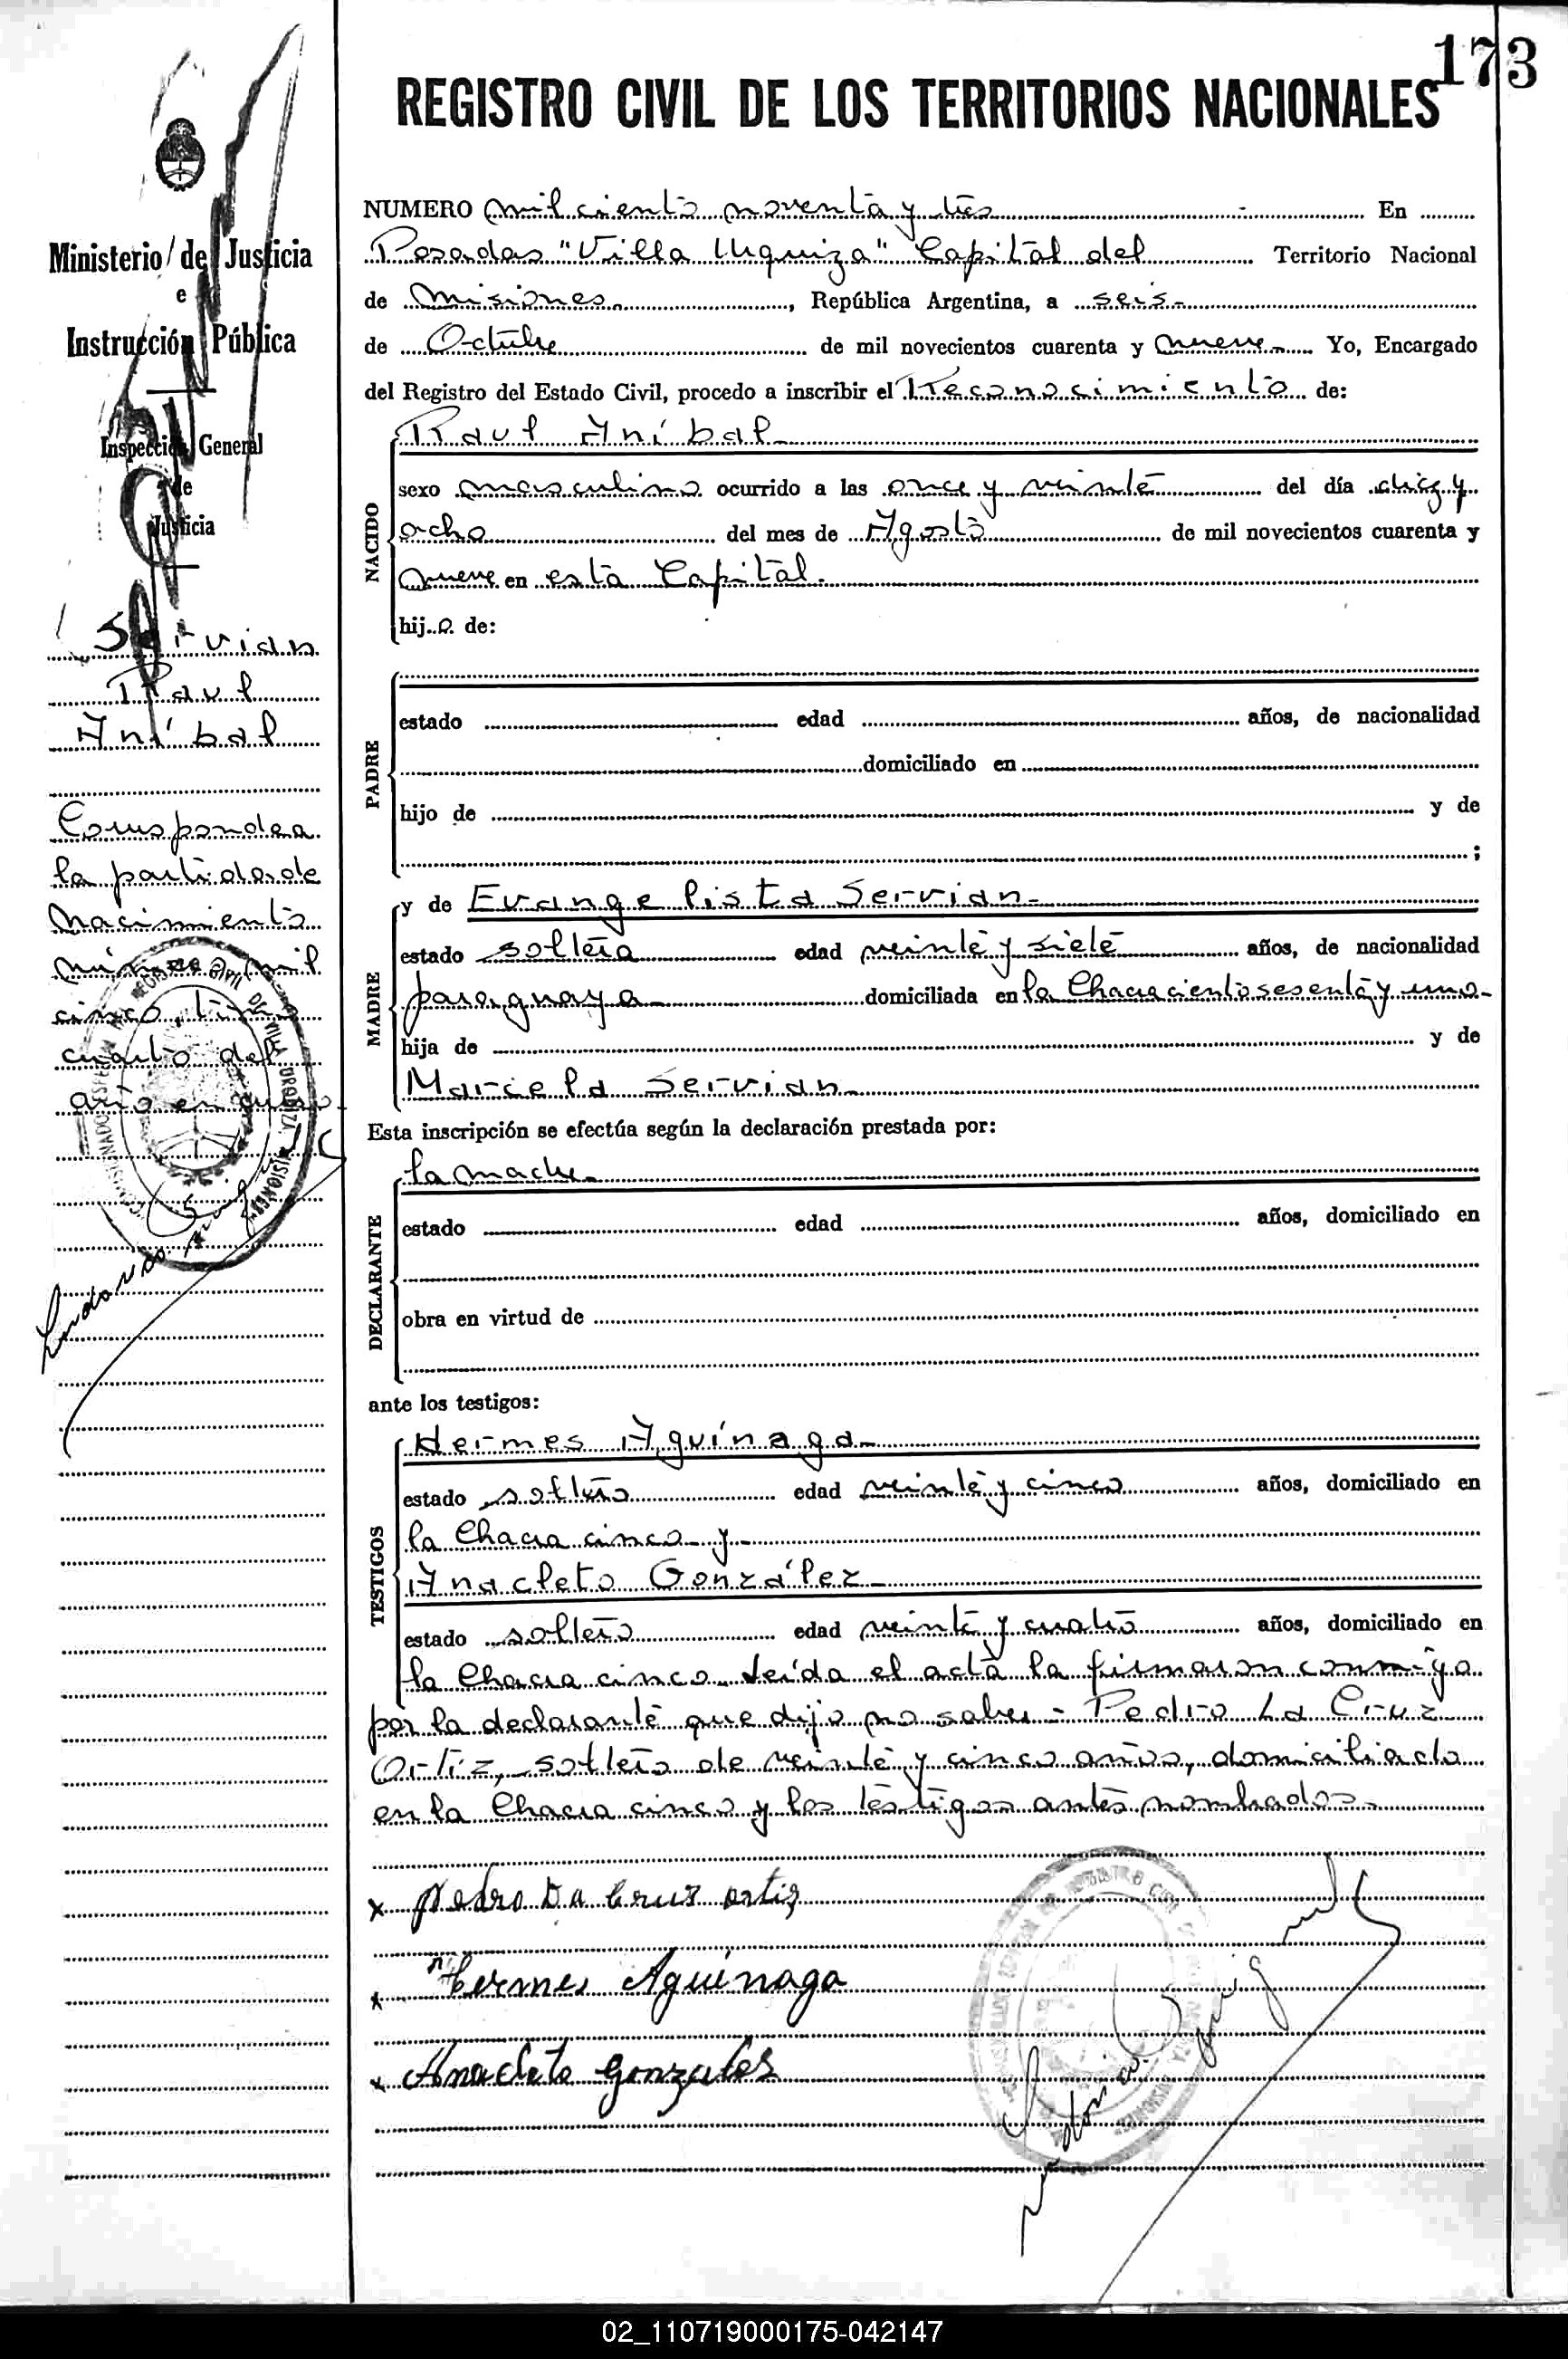 173
REGISTRO CIVIL DE LOS TERRITORIOS NACIONALES
Ministerio de Justicia
e
Instrucción Pública
Inspección General
de
Justicia
Servian
Raul
Aníbal
Corresponde a
la partida de
nacimiento
número mil
cinco tomo
cuarto del
año en curso.
NUMERO mil ciento noventa y tres En
Posadas "Villa Urquiza" Capital del Territorio Nacional
de Misiones, República Argentina, a seis
de Octubre de mil novecientos cuarenta y nueve Yo, Encargado
del Registro del Estado Civil, procedo a inscribir el Reconocimiento de:
NACIDO
Raul Aníbal
sexo masculino ocurrido a las once y veinte del día diez y
ocho del mes de Agosto de mil novecientos cuarenta y
nueve en esta Capital.
hijo de:
PADRE
estado edad años, de nacionalidad
domiciliado en
hijo de y de
;
MADRE
y de Evangelista Servian
estado soltera edad veinte y siete años, de nacionalidad
paraguaya domiciliada en la Chacra ciento sesenta y uno
hija de y de
Marcela Servian
Esta inscripción se efectúa según la declaración prestada por:
DECLARANTE
la madre
estado edad años, domiciliado en
obra en virtud de
ante los testigos:
TESTIGOS
Hermes Aguínaga
estado soltero edad veinte y cinco años, domiciliado en
la Chacra cinco y
Anacleto González
estado soltero edad veinte y cuatro años, domiciliado en
la Chacra cinco. Leída el acta la firmaron conmigo
por la declarante que dijo no saber - Pedro La Cruz
Ortiz, soltero de veinte y cinco años, domiciliado
en la Chacra cinco y los testigos antes nombrados.
x pedro La Cruz ortiz
x Hermes Aguínaga
x Anacleto Gonzales
02_110719000175-042147